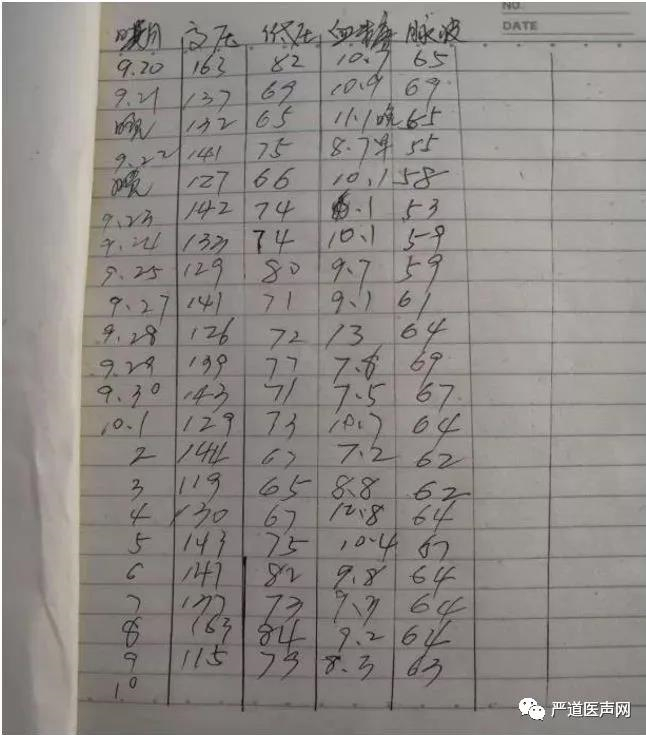 NO.
DATE
日期 高压 低压 血糖 脉波
9.20 163 82 10.9 65
9.21 137 69 10.9 69
晚 132 65 11.1晚 65
9.22 141 75 8.7早 55
晚 127 66 10.1 58
9.23 142 74 6.1 53
9.24 133 74 10.1 59
9.25 129 80 9.7 59
9.27 141 71 9.1 61
9.28 126 72 13 64
9.29 139 77 7.8 69
9.30 143 71 7.5 67
10.1 129 73 10.7 64
2 144 67 7.2 62
3 119 65 8.8 62
4 130 67 12.8 64
5 143 75 10.4 67
6 147 82 9.8 64
7 137 73 9.3 64
8 163 84 9.2 64
9 115 73 8.3 63
10
严道医声网